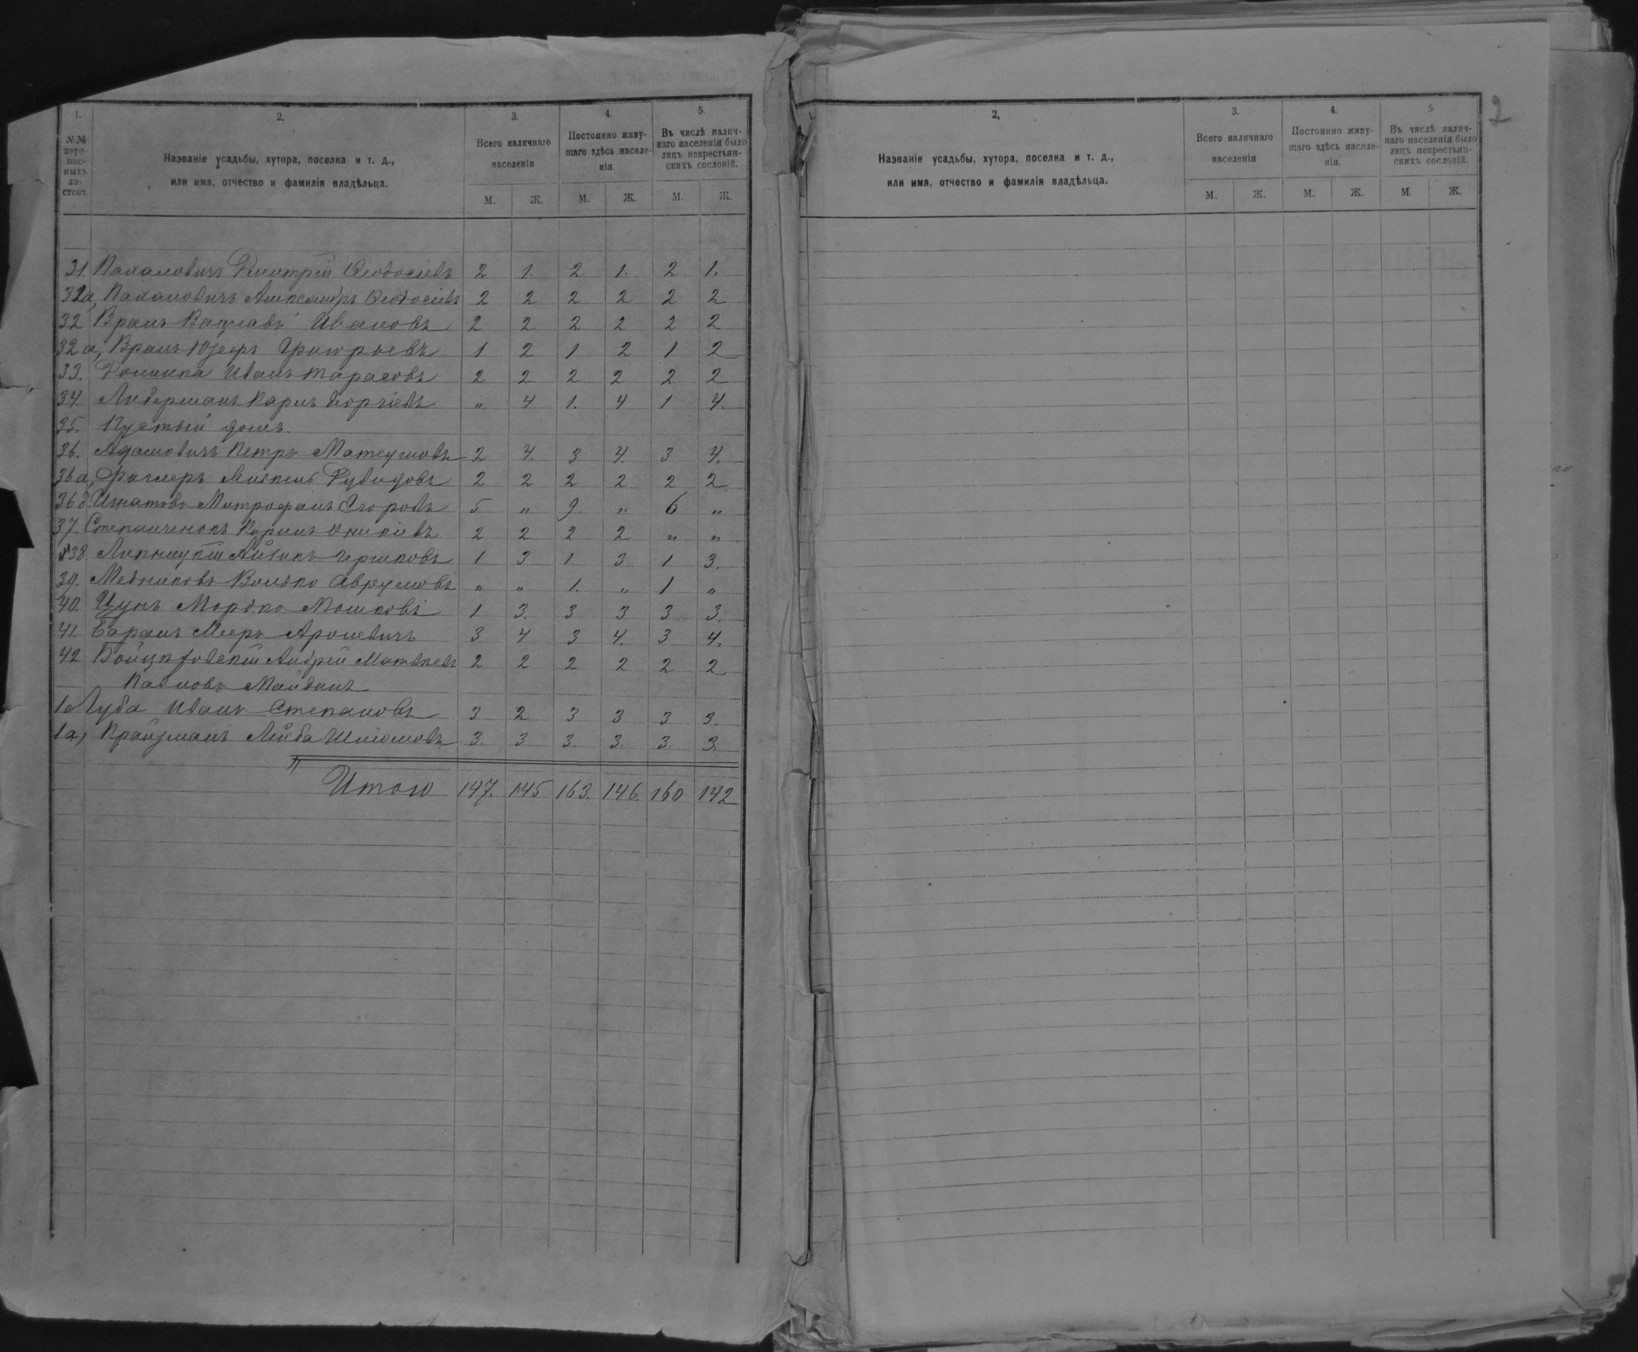 1. 2. 3. 4. 5.
№№ пере-пис-ныхъ ли-стовъ. Названіе усадьбы, хутора, поселка и т. д., или имя, отчество и фамилія владѣльца. Всего наличнаго населенія Постоянно живу-щаго здѣсь населе-нія. Въ числѣ налич-наго населенія было лицъ некрестьян-скихъ сословій.
М. Ж. М. Ж. М. Ж.
31. Дмитрій Ѳеодосіевъ 2 1. 2 1. 2 1.
31а, Александръ Ѳеодосіевъ 2 2 2 2 2 2
32 Врать Вацлавъ Ивановъ 2 2 2 2 2 2
32а, Григорьевъ 1 2 1 2 1 2
33. Иванъ Тарасовъ 2 2 2 2 2 2
34. Либерманъ " 4 1. 4 1 4.
35. Пустой домъ.
36. Адамовичъ Петръ Матеушовъ 2 4. 3 4. 3 4.
36а, 2 2 2 2 2 2
36б Игнатовъ Митрофанъ Егоровъ 5 " 9. " 6 "
37. Степанченокъ 2 2 2 2 " "
38 1 3 1 3 1 3.
39. Мельниковъ Волько " " 1. " 1 "
40. Цунъ Мордко Мошковъ 1 3. 3 3 3 3.
41. Баранъ Мееръ Ароневичъ 3 4 3 4. 3 4.
42 Андрей Матвѣевъ 2 2 2 2 2 2
Майданъ
1 Луба Иванъ Степановъ 3 2 3 3 3 3.
1а, Крайзманъ Лейба Шліомовъ 3. 3 3. 3. 3. 3.
Итого 147. 145 163. 146. 160 142
2
2. 3. 4. 5
Названіе усадьбы, хутора, поселка и т. д., или имя, отчество и фамилія владѣльца. Всего наличнаго населенія Постоянно живу-щаго здѣсь населе-нія. Въ числѣ налич-наго населенія было лицъ некрестьян-скихъ сословій.
М. Ж. М. Ж. М. Ж.